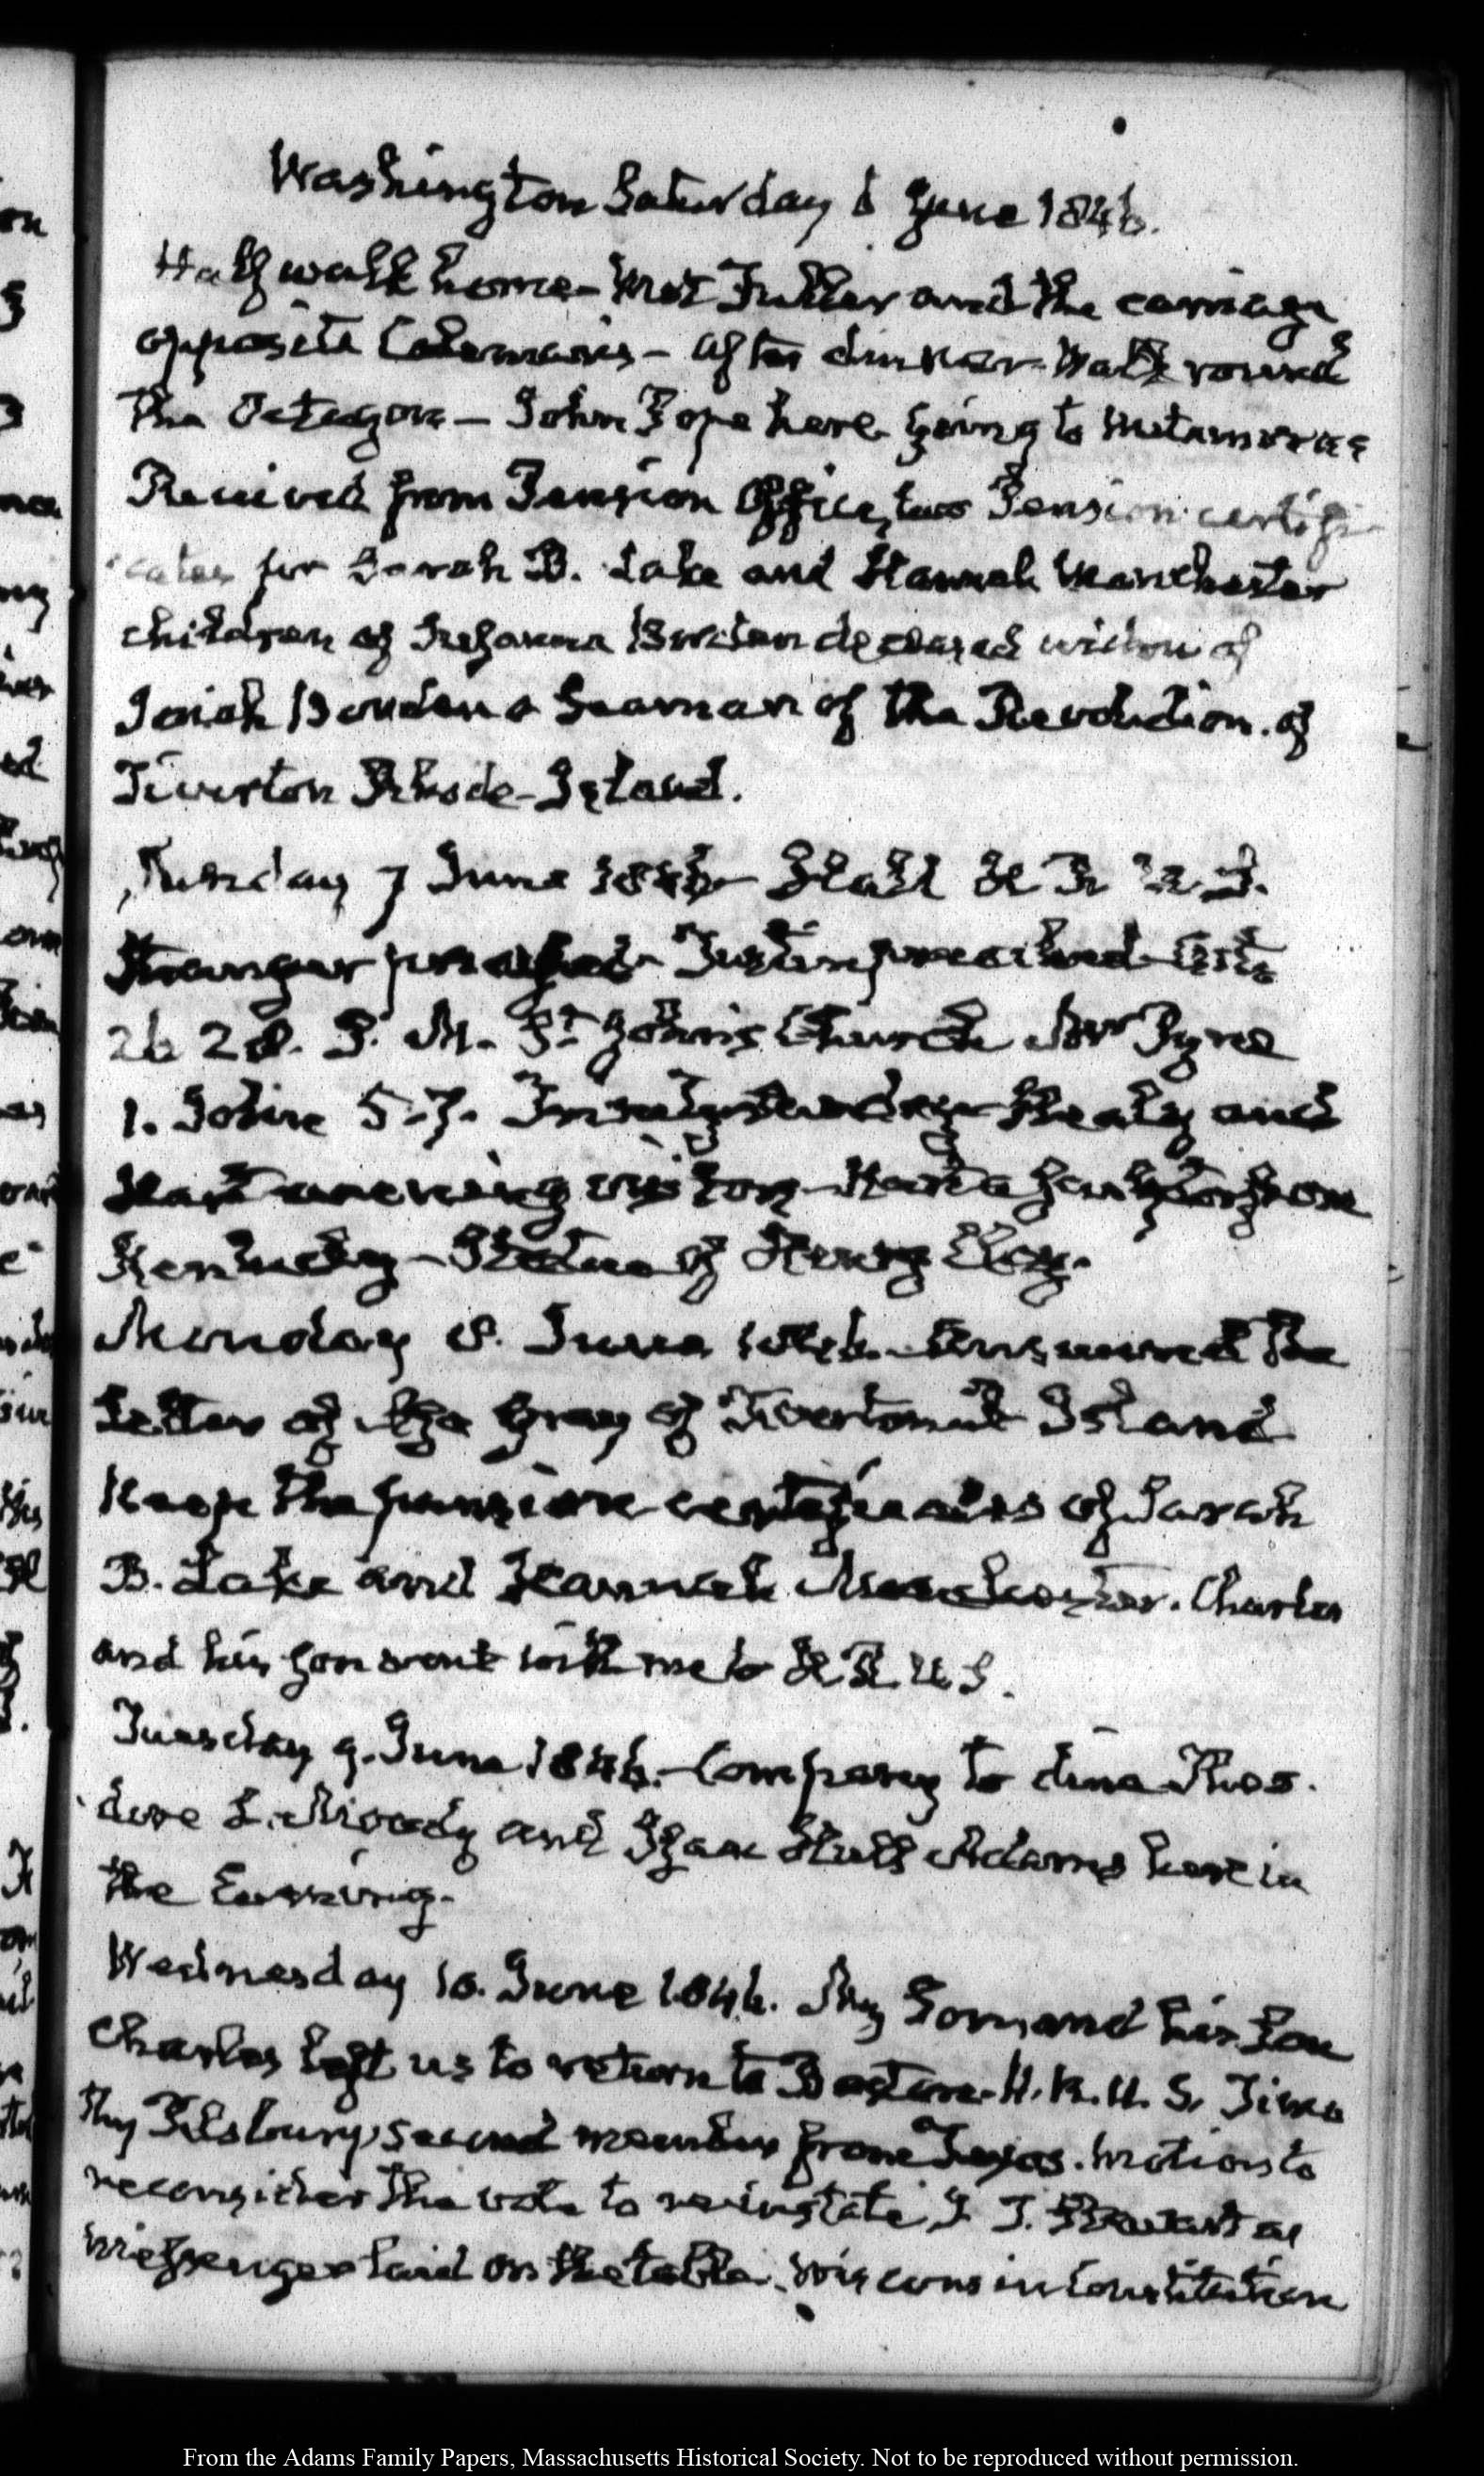 Washington Saturday 6 June 1846.
Half walk home - Met Fuller and the carriage
opposite Coleman's - after dinner Walk round
the Octagon - John Pope here going to Matamoras
Received from Pension Office, two Pension certifi-
cates for Sarah B. Lake and Hannah Manchester
children of Borden deceased widow of
Isaiah Borden a Seaman of the Revolution of
Tiverton Rhode-Island.
Sunday 7 June 1846 - Hall H R U.S.
Stranger preached - Justin preached Acts
26 28. P. M. St John's Church Mr Pyne
1. John 5. 7. Healy and
Hart evening visitors - Hart a sculptor from
Kentucky - Statue of Henry Clay.
Monday 8. June 1846. Answered the
Letter of Gray of Tiverton Island
Keep the pension certificates of Sarah
B. Lake and Hannah Manchester. Charles
and his son went with me to H R. U S.
Tuesday 9. June 1846. - Company to dine Theo.
dore L. Moody and Isaac Hull Adams here in
the Evening.
Wednesday 10. June 1846. My Son, and his Son
Charles left us to return to Boston. H. R. U. S. Timo
thy Pilsbury, second member from Texas. Motion to
reconsider the vote to reinstate J. J. Stewart as
messenger laid on the table. Wisconsin Constitution
From the Adams Family Papers, Massachusetts Historical Society. Not to be reproduced without permission.